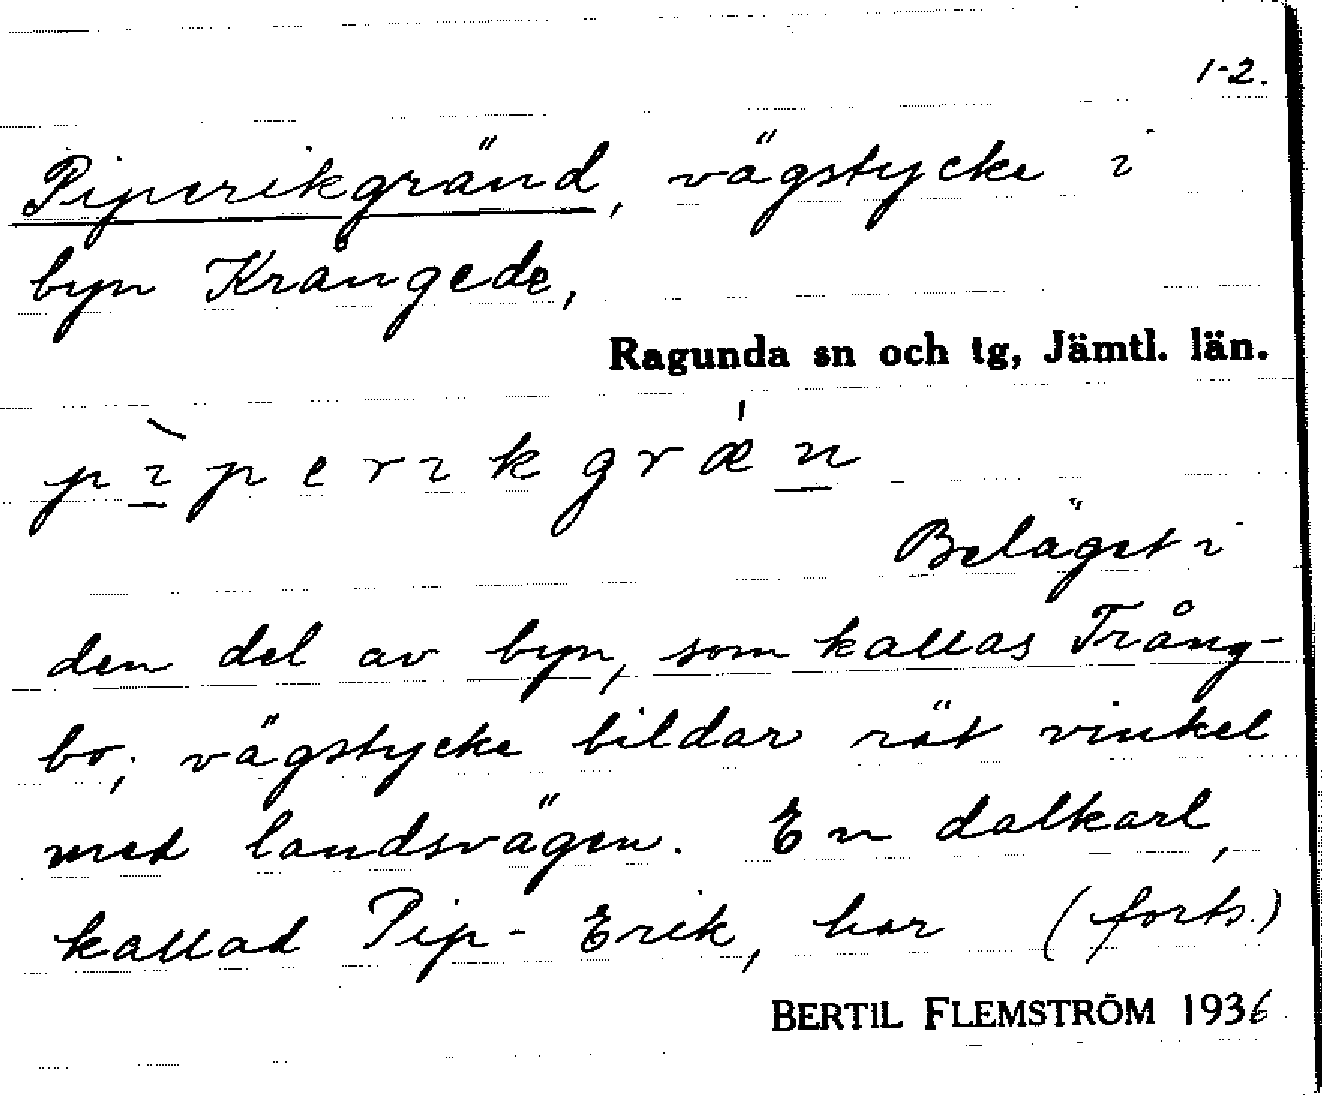 1-2.
Piperikgränd, vägstycke i
byn Krångede,
Ragunda sn och tg, Jämtl. län.
pìperıkgrǽn
Beläget i
den del av byn, som kallas Trång-
bo; vägstycke bildar rät vinkel
med landsvägen. En dalkarl,
kallad Pip-Erik, har (forts.)
BERTIL FLEMSTRÖM 1936